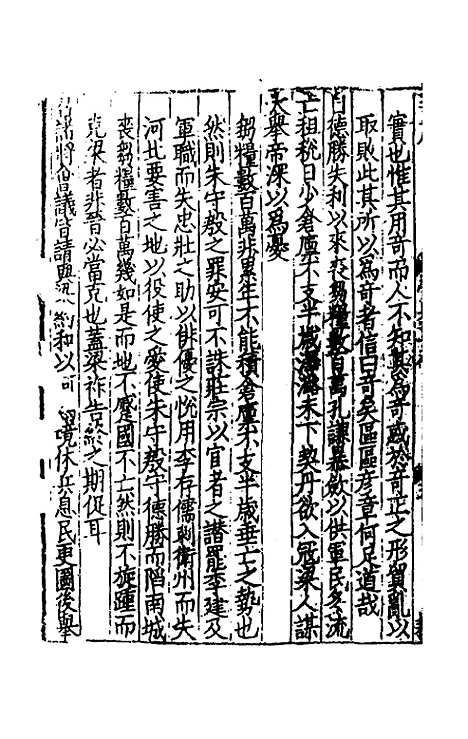 實也惟其用奇而人不知其為奇惑於奇正之形貿亂以
取敗此其所以為奇者信曰奇矣區區彥章何足道哉
自德勝失利以來喪芻糧數百萬孔謙暴斂以供軍民多流
亡租稅日少倉廩不支半歲澤潞未下契丹欲入寇梁人謀
大舉帝深以為憂
芻糧數百萬非累年不能積倉廩不支半歲垂亡之勢也
然則朱守殷之罪安可不誅莊宗以宦者之譖罷李建及
軍職而失忠壯之助以俳優之悅用李存儒刺衛州而失
河北要害之地以役使之愛使朱守殷守德勝而隳南城
喪芻糧數百萬幾如是而地不蹙國不亡然則不旋踵而
克梁者非晉必當克也蓋梁祚告終之期促耳
諸將會議皆請與梁約和以河為境休兵息民更圖後舉